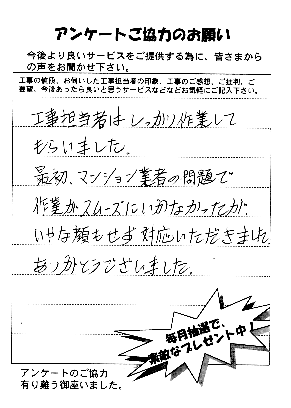 アンケートご協力のお願い
今後より良いサービスをご提供する為に、皆さまから
の声をお聞かせ下さい。
工事の値段、お伺いした工事担当者の印象、工事のご感想、ご批判、ご
要望、今後あったら良いと思うサービスなどなどお気軽にご記入下さい。
工事担当者はしっかり作業して
もらいました。
最初、マンション業者の問題で
作業がスムーズにいかなかったが
いやな顔もせず対応いただきました
ありがとうございました。
毎月抽選で、
素敵なプレゼント中!
アンケートのご協力
有り難う御座いました。